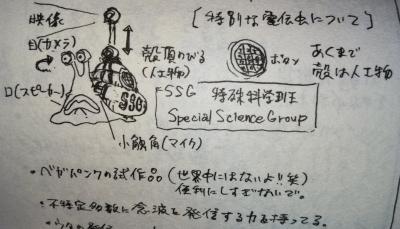 映像
目(カメラ)
口(スピーカー)
殻頂のびる
(人工物)
SSG
小触角(マイク)
[特別な電伝虫について]
ボタン
あくまで
殻は人工物
SSG 特殊科学班
Special Science Group
・ベガパンクの試作品(世界中にはないよ!!笑)
便利にしすぎないで。
・不特定多数に念波を発信する力を持ってる。